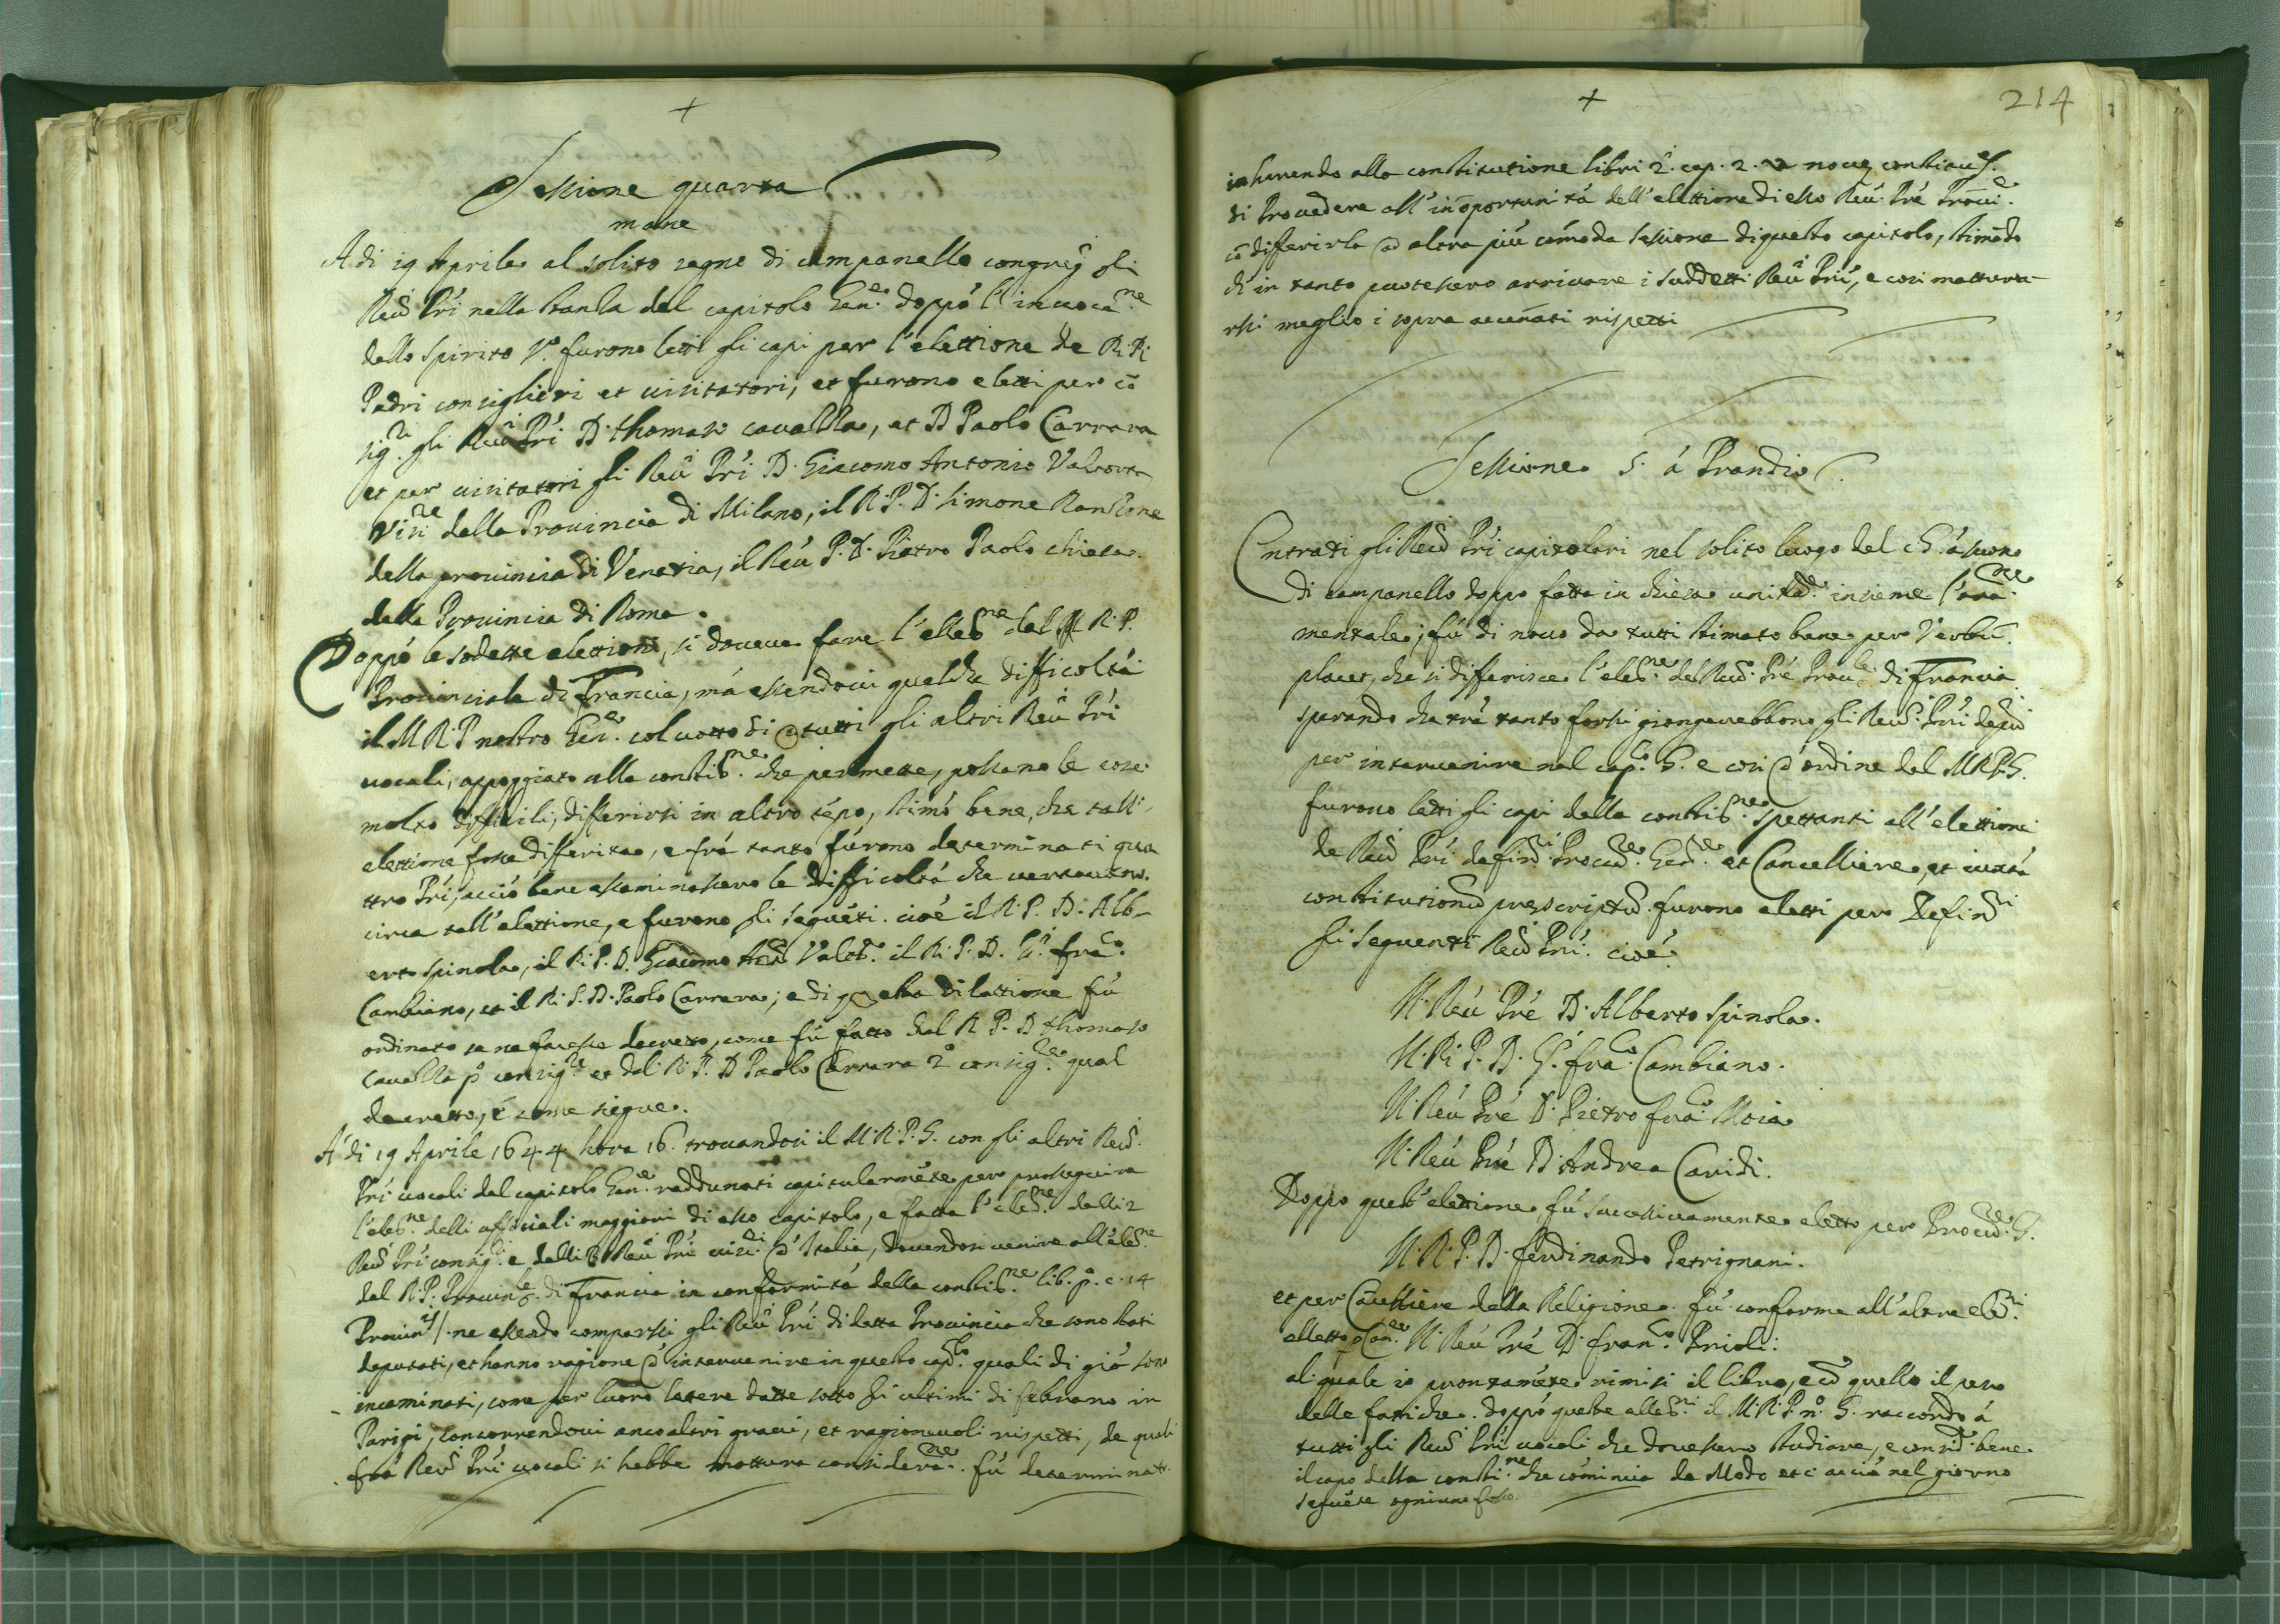 +
Sessione quarta
mane
A di 19 Aprile al solito segno di campanello congreg.i gli
Reu.di Pri nella stanza del capitolo Gen.le doppò l'inuoca.ne
dello spirito s.o furono letti gli capi per l'elettione de R.di
Padri consiglieri et uisitatori, et furono eletti per cō
sig.ri gli Reu.i Pri D. thomaso caualla, et D Paolo Carrara
et per uisitatori gli Reu.i Pri D. Giacomo Antonio Valtorta
Visi.re della Prouincia di Milano, il R. P. D. Simone Ranzone
della prouincia di Venetia, il Reu. P. D. Pietro Paolo chiesa
della Prouincia di Roma.
Doppò le sodette elettioni, si doueua fare l'elleſ.ne del M R. P.
Prouinciale di Francia, mà essendoui qualche difficoltà
il M R P nostro Gen.le col uotto di tutti gli altri Reu.i Pri
uocali, appoggiato alla constiſ.ne che permette, possano le cose
molto difficili, differirsi in altro tēpo, stimò bene, che tall
elettione fosse differita, e frà tanto fùrono determinati qua
ttro Pri, acciò bene essaminassero le difficoltà che uersauano
circa tall'elettione, e furono gli seguēti. cioè il R. P. D. Alb-
erto spinola, il R. P. D. Giacomo Ant.o Valt.a il R. P. D. G. fra.co
Cambiano, et il R. P. D. Paolo Carrara; e di questa dilattione fù
ordinato se ne facesse decreto, come fù fatto dal R P. D thomaso
caualla p.o consig.re et dal R. P. D Paolo Carrara 2.o consig.re qual
decretto, è come siegue.
A di 19 Aprile 1644 hora 16. trouandosi il M. R. P. G. con gli altri Reu.di
Pri uocali del capitolo Gen.le raddunati capitularmēte per prosseguire
l'eleſ.ne delli officiali maggiori di esso capitolo, e fatta l'eleſ.ne delli 2
Reu.di Pri consig.ri e delli 3 Reu.i Pri uisi.ri d'Italia, douendosi uenire all'eleſ.ne
del R. P. Prouin.le di Francia in conformità della constiſ.ne lib. p.o c. 14
ne essendo comparsi gli Reu.i Pri di detta Prouincia che sono stati
deputati, et hanno ragione d'interuenire in questo cap.lo quali di già son
incaminati, come per luoro letere datte sotto gli ultimi di febraro in
Parigi, concorrendoui anco altri graui, et ragioneuoli rispetti, de quali
frà Reu.di Pri uocali si hebbe mattura considera.ne fù determinato
+
214
inherendo alla constitutione libri 2.i cap. 2. nouą
di Prouedere all'inoportunità dell'elettione di esso Reu. Prē Proui.le
cō diferirla ad altra più cōmoda sessione di questo capitolo, stimādo
che in tanto puotessero arriuare i suddetti Reu.i Pri, e cosi mattura-
rsi meglio i sopra accenati rispetti
Sessione 5. à Prandio
Entrati gli Reu.di Pri capitolari nel solito luogo del cG. à suono
di campanello doppo fatta in chiesa unitam.te insieme l'ora.ne
mentale; fù di nouo da tutti stimato bene per Verbū
placet, che si differisce l'eleſ.ne del Reu.do Prē Prou.le di Francia
sperando che trà tanto forsi giongerebbono gli Reu.di Pri
per interuenire nel cap.lo G. e cosi d'ordine del M R P. G.
furono letti gli capi della constiſ.ne spettanti all'elettioni
de Reu.di Pri defin.ri Procur.re Gen.le et Cancelliere, et iuxta
constitutionū prescriptū. furono eletti per Defin.ri
gli seguenti Reu.di Pri. cioè
Il Reu Prē D. Alberto spinola.
Il R. P. D. G. fra.co Cambiano.
Il Reu Prē D. Pietro fra.co Moia
Il Reu Prē D. Andrea Caridi.
Doppo quest'elettione, fù successiuamente eletto per Procur.re G.
Il R. P. D. ferdinando Petrignani.
et per Cācelliere della Religione. fù conforme all'altre eleſ.ni
elletto p Can.re Il Reu Prē D. fran.co Prioli.
al quale io prontamēte rimisi il libro, e cō quello il peso
delle fattiche. doppò queste alleſ.ni il M. R. P. n.o G. raccordò à
tutti gli Reu.di Pri uocali che douessero studiare, e consid. bene
il capo della consti.ne che comincia de Modo etc acciò nel giorno
seguēte ogniuno fosse